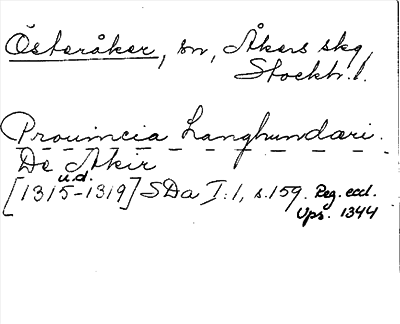 Österåker, sn, Åkers skg,
Stockh. l.
Prouincia Langhundari.
De Akir
u.d.
[1315-1319] SDa I:1, s. 159. Reg. eccl.
Ups. 1344